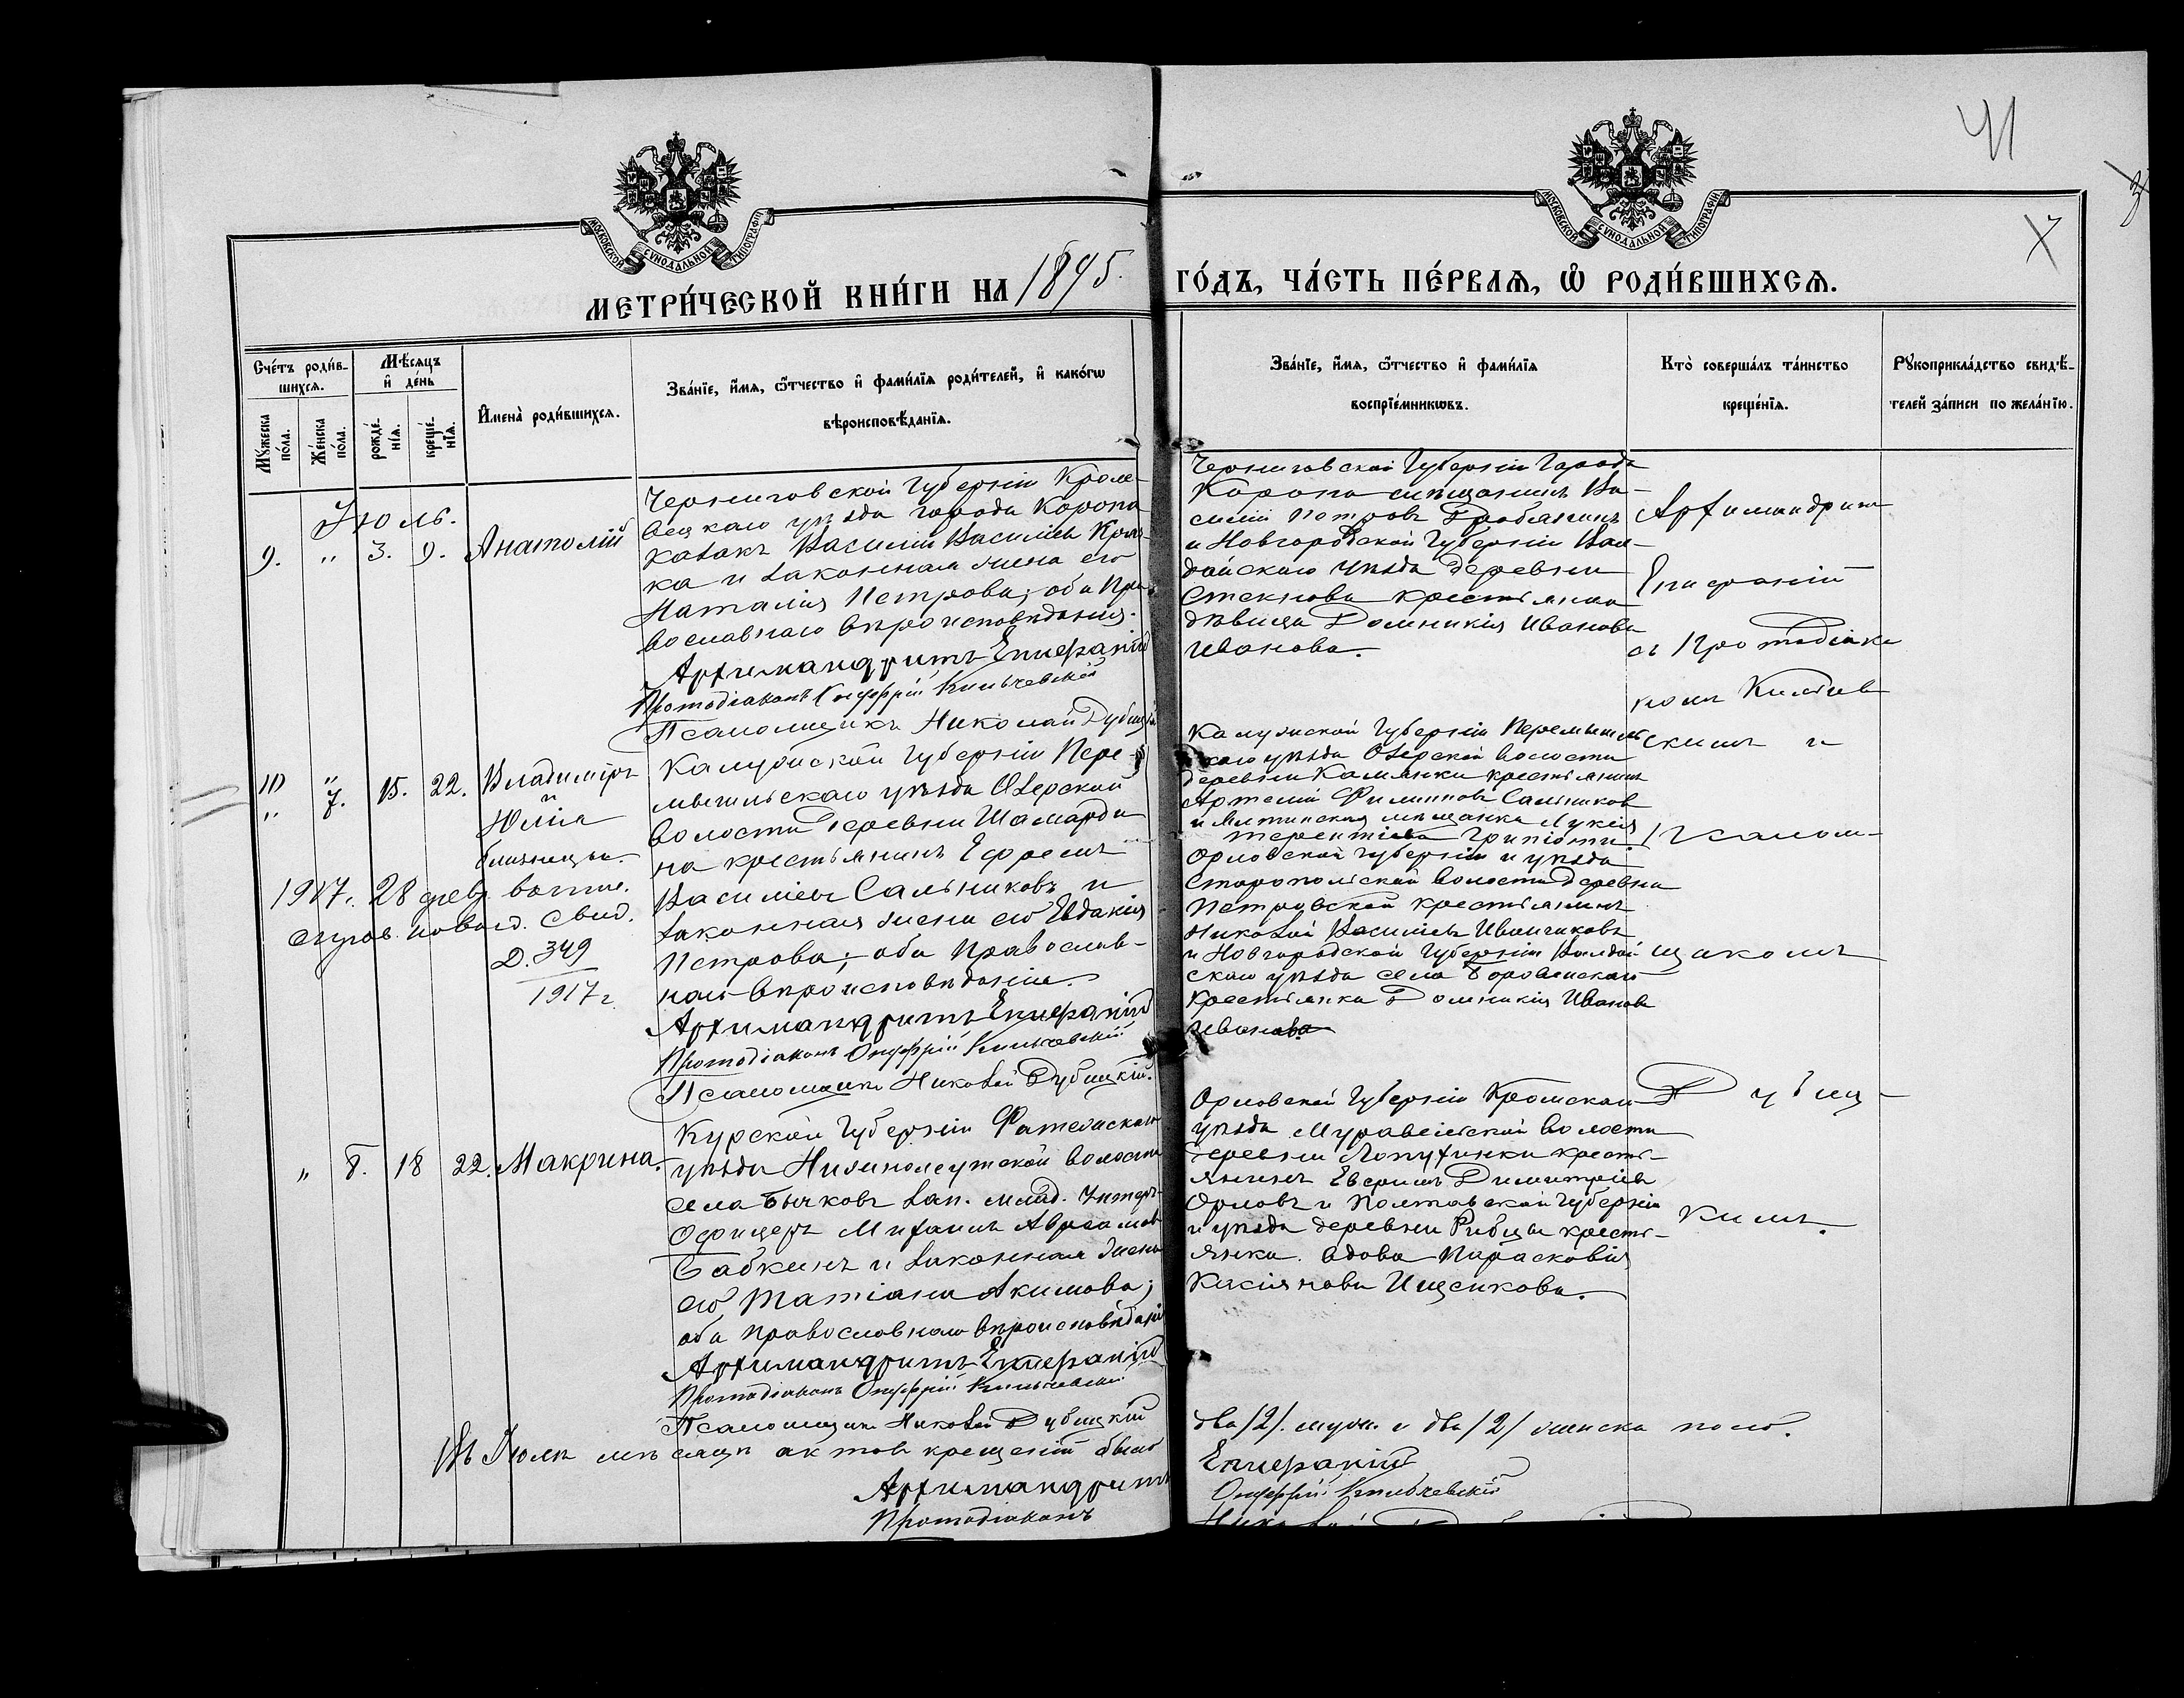 41
МОСКОВСКОЙ СѴНОДАЛЬНОЙ ТИПОГРАФІИ
МОСКОВСКОЙ СѴНОДАЛЬНОЙ ТИПОГРАФІИ
МЕТРИ́ЧЕСКОЙ КНИ́ГИ НА 1895. ГО́ДЪ, ЧА́СТЬ ПЕ́РВАЯ, Ѽ РОДИ́ВШИХСЯ.
Сче́тъ роди́в-
шихся.
Мѣ́сяцъ
и҆ де́нь
Мꙋ́жеска
по́ла.
Же́нска
по́ла.
рожде́-
нїя.
креще́-
нїя.
И҆мена̀ роди́вшихся.
Зва́нїе, и҆́мя, ѻ҆́тчество и҆ фами́лїя роди́телей, и҆ како́гѡ
вѣроисповѣ́данїя.
Зва́нїе, и҆́мя, ѻ҆́тчество и҆ фами́лїя
воспрїе́мникѡвъ.
Кто̀ соверша́лъ та́инство
креще́нїя.
Рꙋкоприкла́дство свидѣ́-
телей за́писи по жела́нїю.
Іюль.
9. " 3. 9. Анатолій
Черниговской Губерніи Кроле-
вецкаго уѣзда города Коропа
казакъ Василій Васильевъ
ка и законная жена его
Наталія Петрова; оба Пра-
вославнаго вѣроисповѣданія.
Архимандритъ Епифаній
Протодіаконъ Онуфрій Кильчевскій
Псаломщикъ Николай Дубицкій
Черниговской Губерніи Города
Коропа мѣщанинъ Ва-
силій Петровъ
и Новгородской Губерніи Вал-
дайскаго уѣзда деревни
крестьянка
дѣвица Домникія Иванова
Иванова.
10 " 15. 22. Владиміръ
" 7. и
Юлія
близнецы.
1917. 28 февр. выпис.
Д. 349
1917 г.
Калужской Губерніи Пере-
мышльскаго уѣзда Озерской
волости деревни Шамарди-
на крестьянинъ Ефремъ
Васильевъ Сальниковъ и
законная жена его Евдакія
Петрова; оба Православ-
наго вѣроисповѣданія.
Архимандритъ Епифаній
Протодіаконъ Онуфрій Кильчевскій
Псаломщикъ Николай Дубицкій.
Калужской Губерніи Перемышль-
скаго уѣзда Озерской волости
деревни Каменки крестьянинъ
Артемій Филиповъ Сальников
и Ялтинская мѣщанка Лукія
Терентіева
Орловской Губерніи и уѣзда
волости деревни
Петровской крестьянинъ
Николай Васильевъ Иванчиковъ
и Новгородской Губерніи Валдай
скаго уѣзда села
крестьянка Домникія Иванова
Иванова.
" 8. 18 22. Макрина.
Курской Губерніи Фатежскаго
уѣзда волости
села Бычковъ зап. млад. Унтеръ-
Офицеръ Михаилъ Авраамовъ
Бабкинъ и законная жена
его Татіана Акимова;
оба православнаго вѣроисповѣданія
Архимандритъ Епифаній
Протодіаконъ Онуфрій Кильчевскій
Псаломщикъ Николай Дубицкій
Орловской Губерніи Кромскаго
уѣзда волости
деревни Лопухинки кресть-
янинъ Димитріевъ
Орловъ и Полтавской Губерніи
и уѣзда деревни Рибцы кресть-
янка вдова Парасковія
Касіянова Ищенкова.
Архимандритъ
Епифаній
съ Протодіако
номъ Кильчев
скимъ и
Псалом-
щикомъ
Дубиц-
кимъ.
Въ Іюлѣ мѣсяцѣ актовъ крещеній было два /2/ муж. и два /2/ женска пола.
Архимандритъ Епифаній
Протодіаконъ Онуфрій Кильчевскій